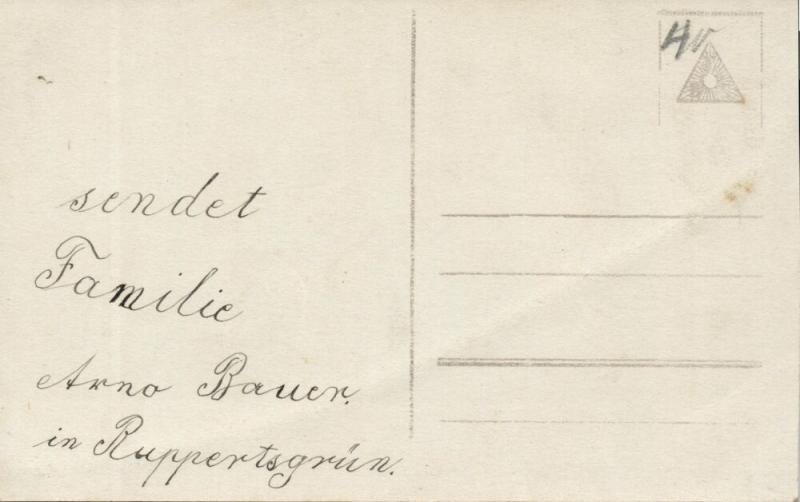 sendet
Familie
Arno Bauer.
in Ruppertsgrün.